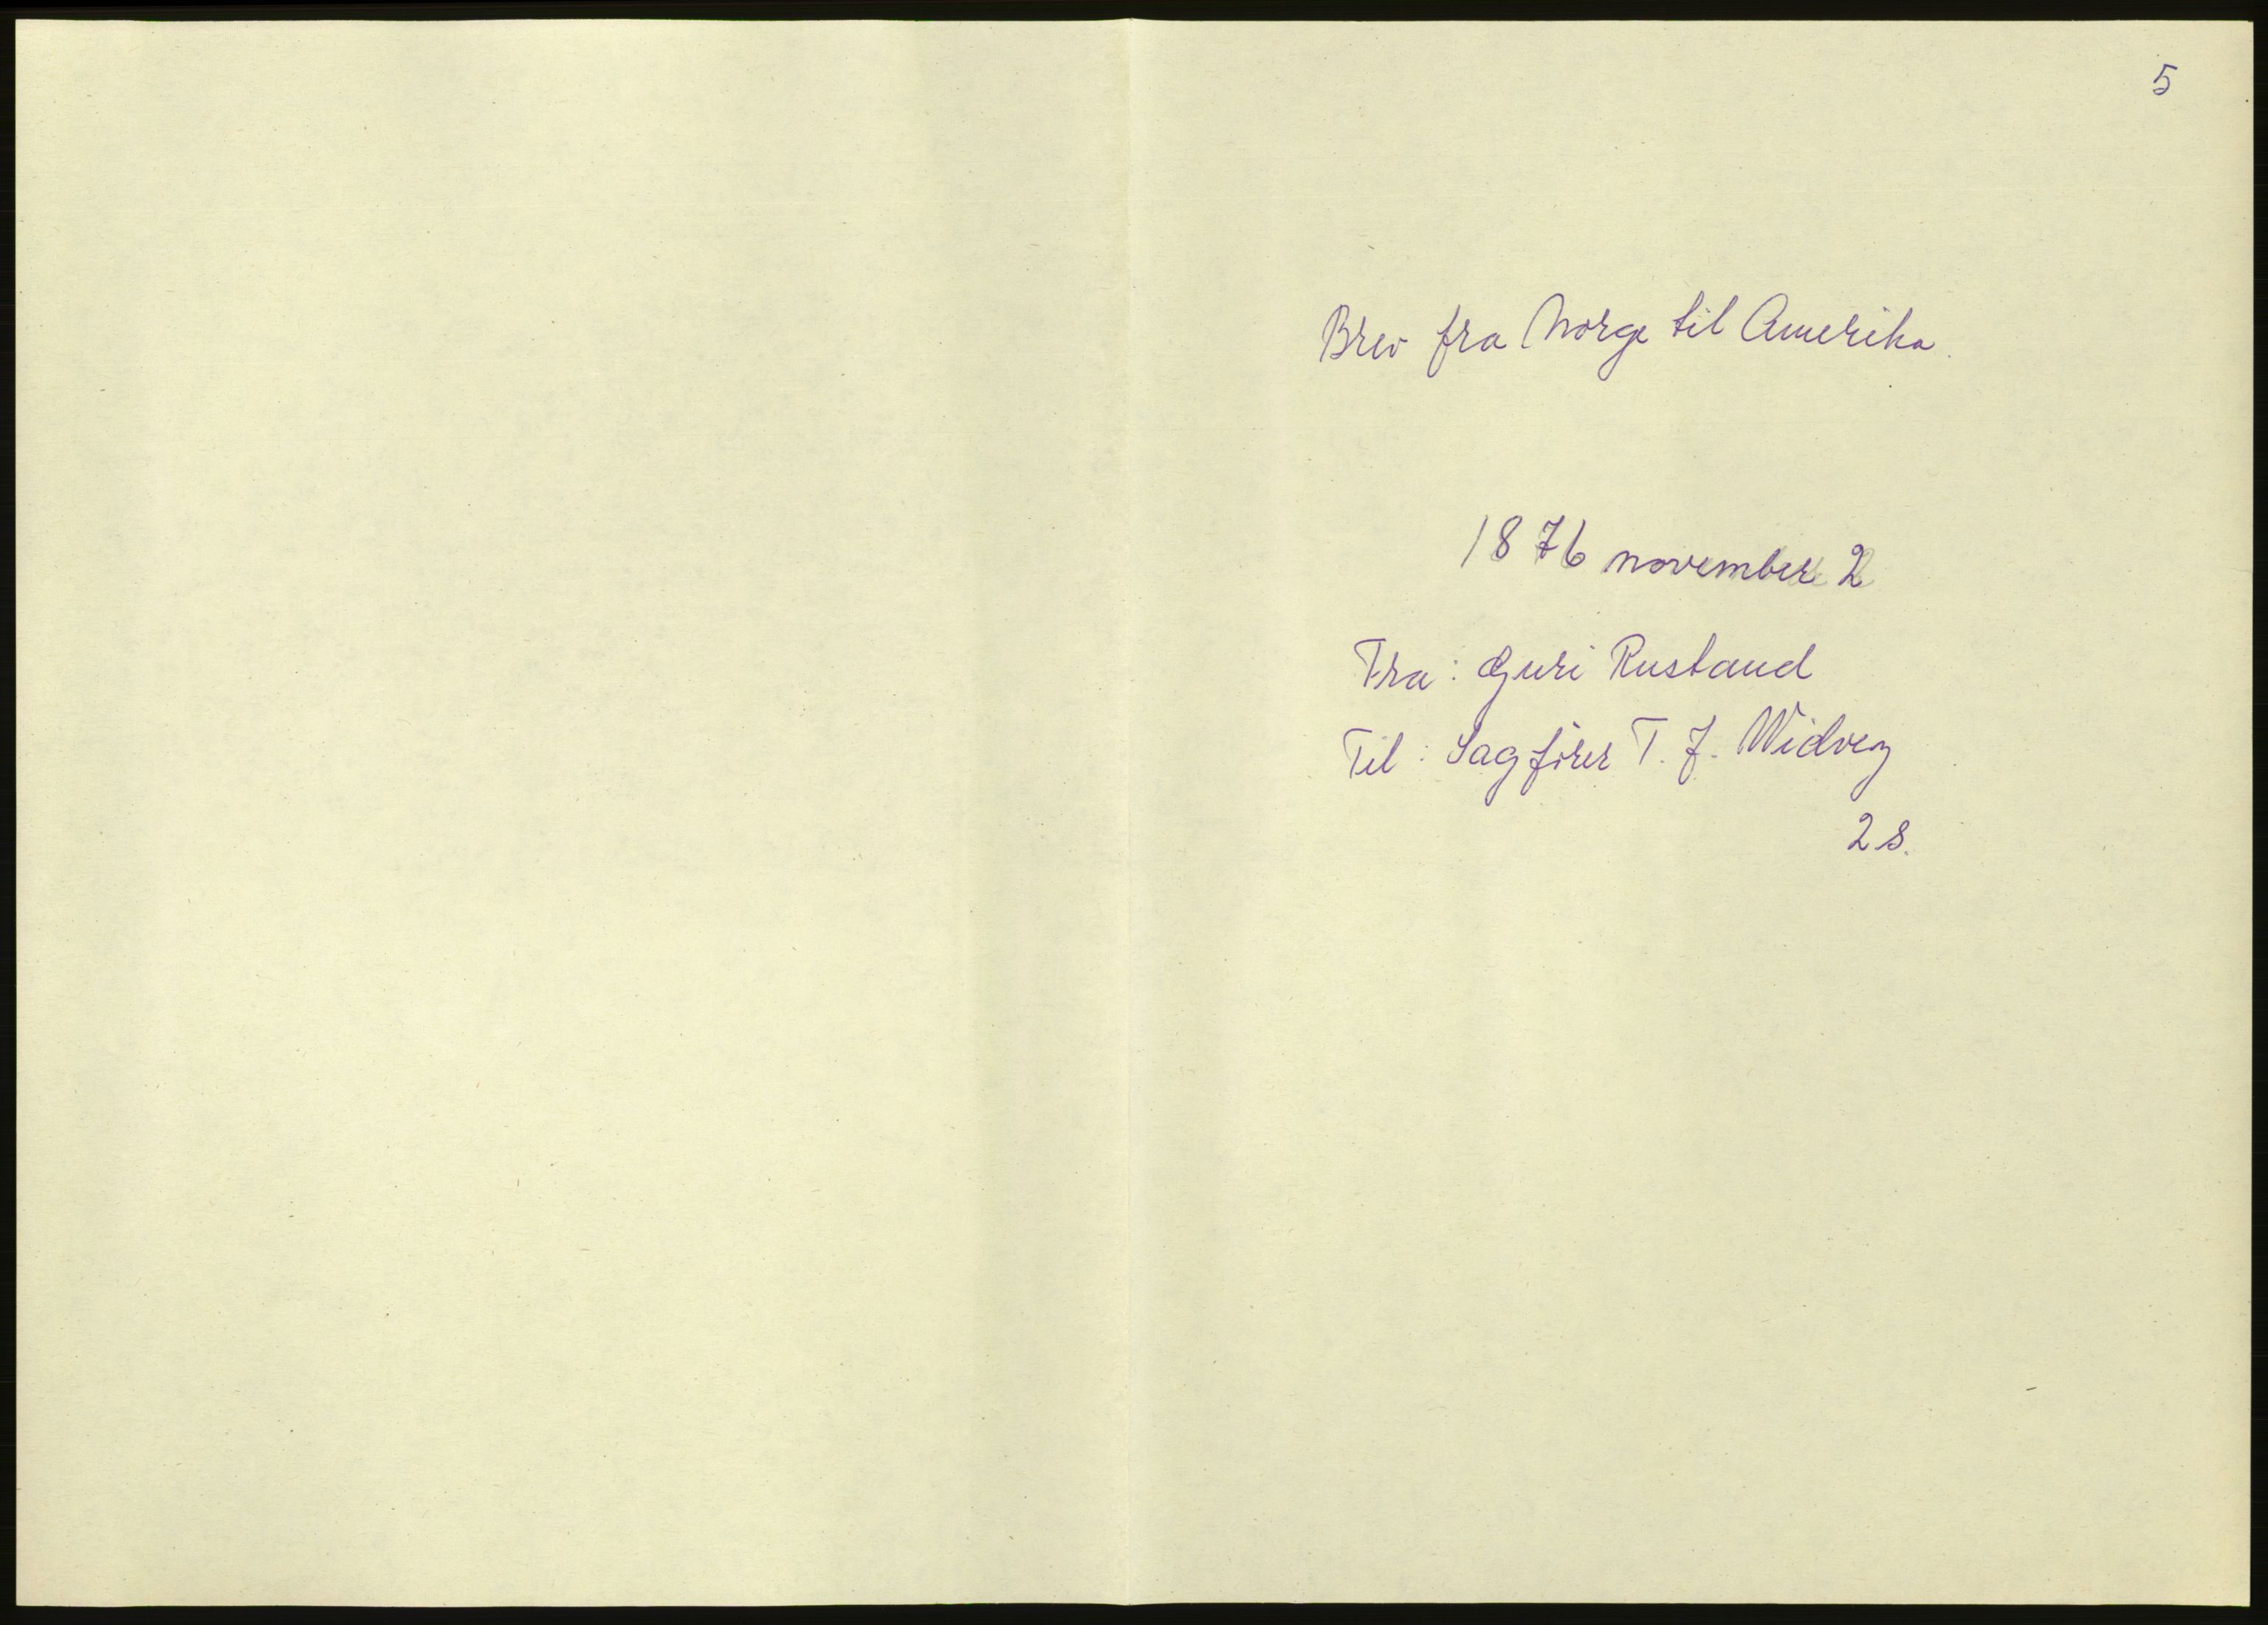 5
Brev fra Norge til Amerika.
1876 november 2
Fra: Guri Rustand
Til: Sagfører T. J. Widvey
2 s.